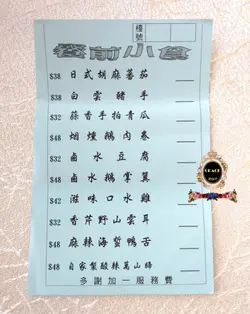 檯號
餐前小食
$38 日式胡麻蕃茄
$38 白雲豬手
$32 蒜香手拍青瓜
$48 烟燻鵝肉卷
$32 鹵水豆腐
$48 鹵水鵝掌翼
$42 滋味口水雞
$32 香芹野山雲耳
$48 麻辣海蜇鴨舌
$48 自家製酸辣萬山蹄
多謝加一服務費
GRACE